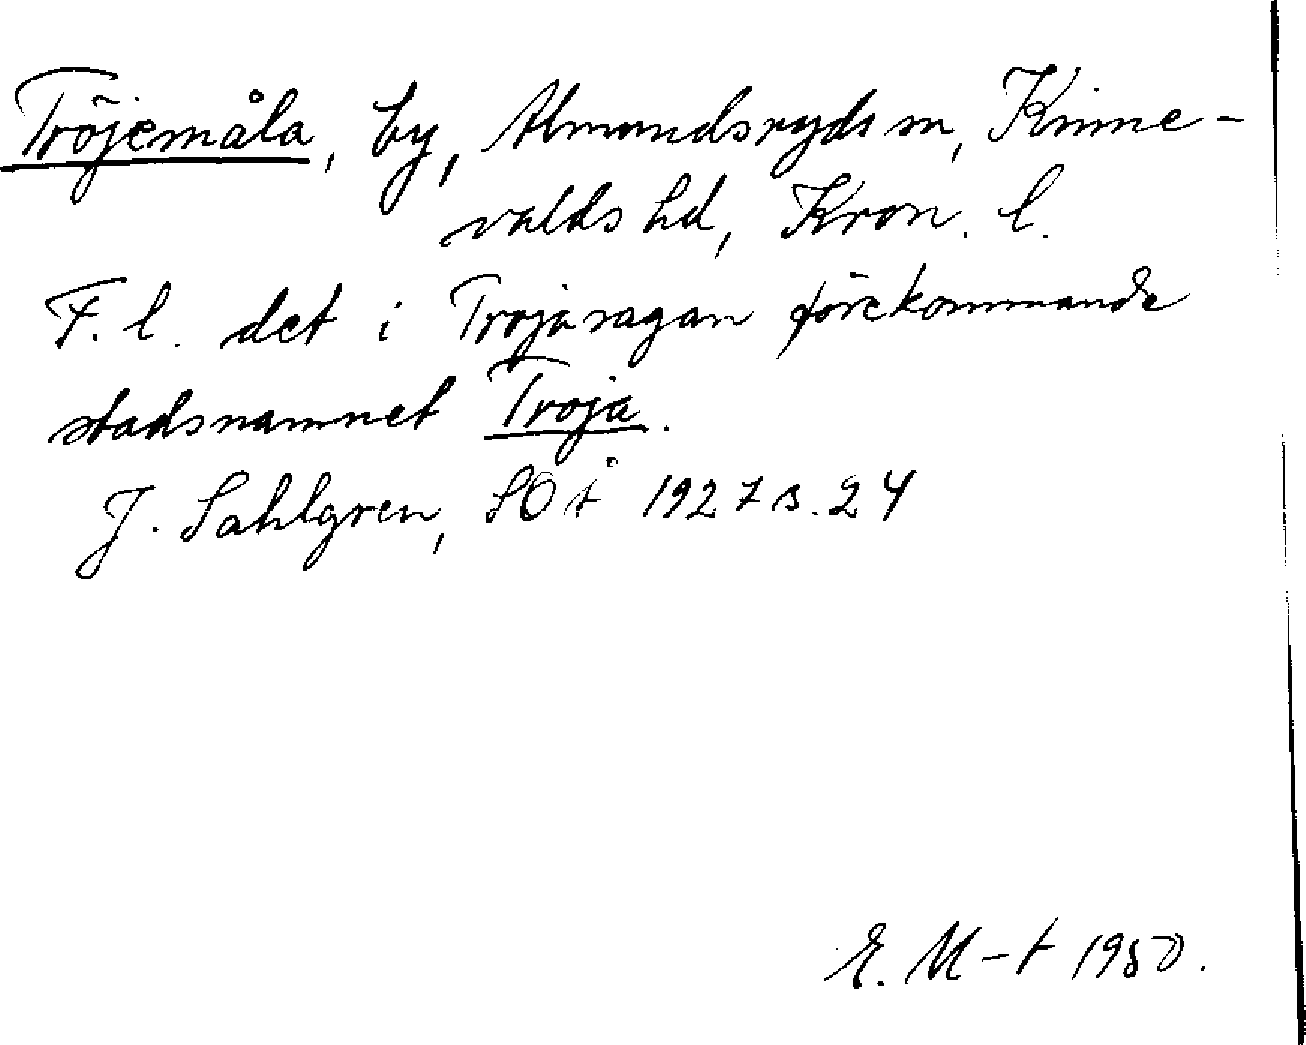 Tröjemåla, by, Almundsryds sn, Kinne-
valds hd, Kron. l.
F. l. det i Trojasagan förekommande
stadsnamnet Troja.
J. Sahlgren, SOÅ 1927 s. 24
E. M-t 1950.